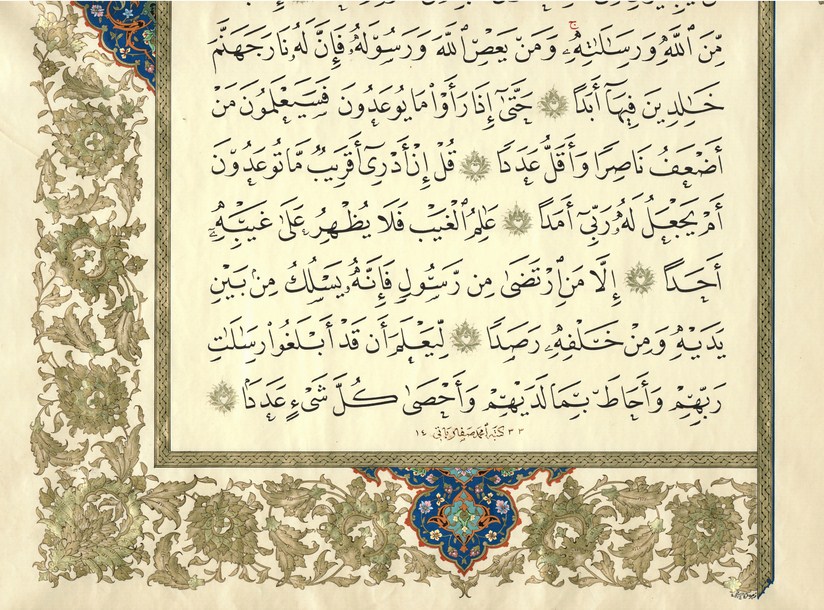 مِّنَ ٱللَّهِ وَرِسَالَاتِهِۦ ۚ وَمَن يَعْصِ ٱللَّهَ وَرَسُولَهُۥ فَإِنَّ لَهُۥ نَارَ جَهَنَّمَ
خَالِدِينَ فِيهَآ أَبَدًا حَتَّىٰٓ إِذَا رَأَوْا۟ مَا يُوعَدُونَ فَسَيَعْلَمُونَ مَنْ
أَضْعَفُ نَاصِرًا وَأَقَلُّ عَدَدًا قُلْ إِنْ أَدْرِىٓ أَقَرِيبٌ مَّا تُوعَدُونَ
أَمْ يَجْعَلُ لَهُۥ رَبِّىٓ أَمَدًا عَالِمُ ٱلْغَيْبِ فَلَا يُظْهِرُ عَلَىٰ غَيْبِهِۦٓ
أَحَدًا إِلَّا مَنِ ٱرْتَضَىٰ مِن رَّسُولٍ فَإِنَّهُۥ يَسْلُكُ مِنۢ بَيْنِ
يَدَيْهِ وَمِنْ خَلْفِهِۦ رَصَدًا لِّيَعْلَمَ أَن قَدْ أَبْلَغُوا۟ رِسَالَاتِ
رَبِّهِمْ وَأَحَاطَ بِمَا لَدَيْهِمْ وَأَحْصَىٰ كُلَّ شَىْءٍ عَدَدًۢا